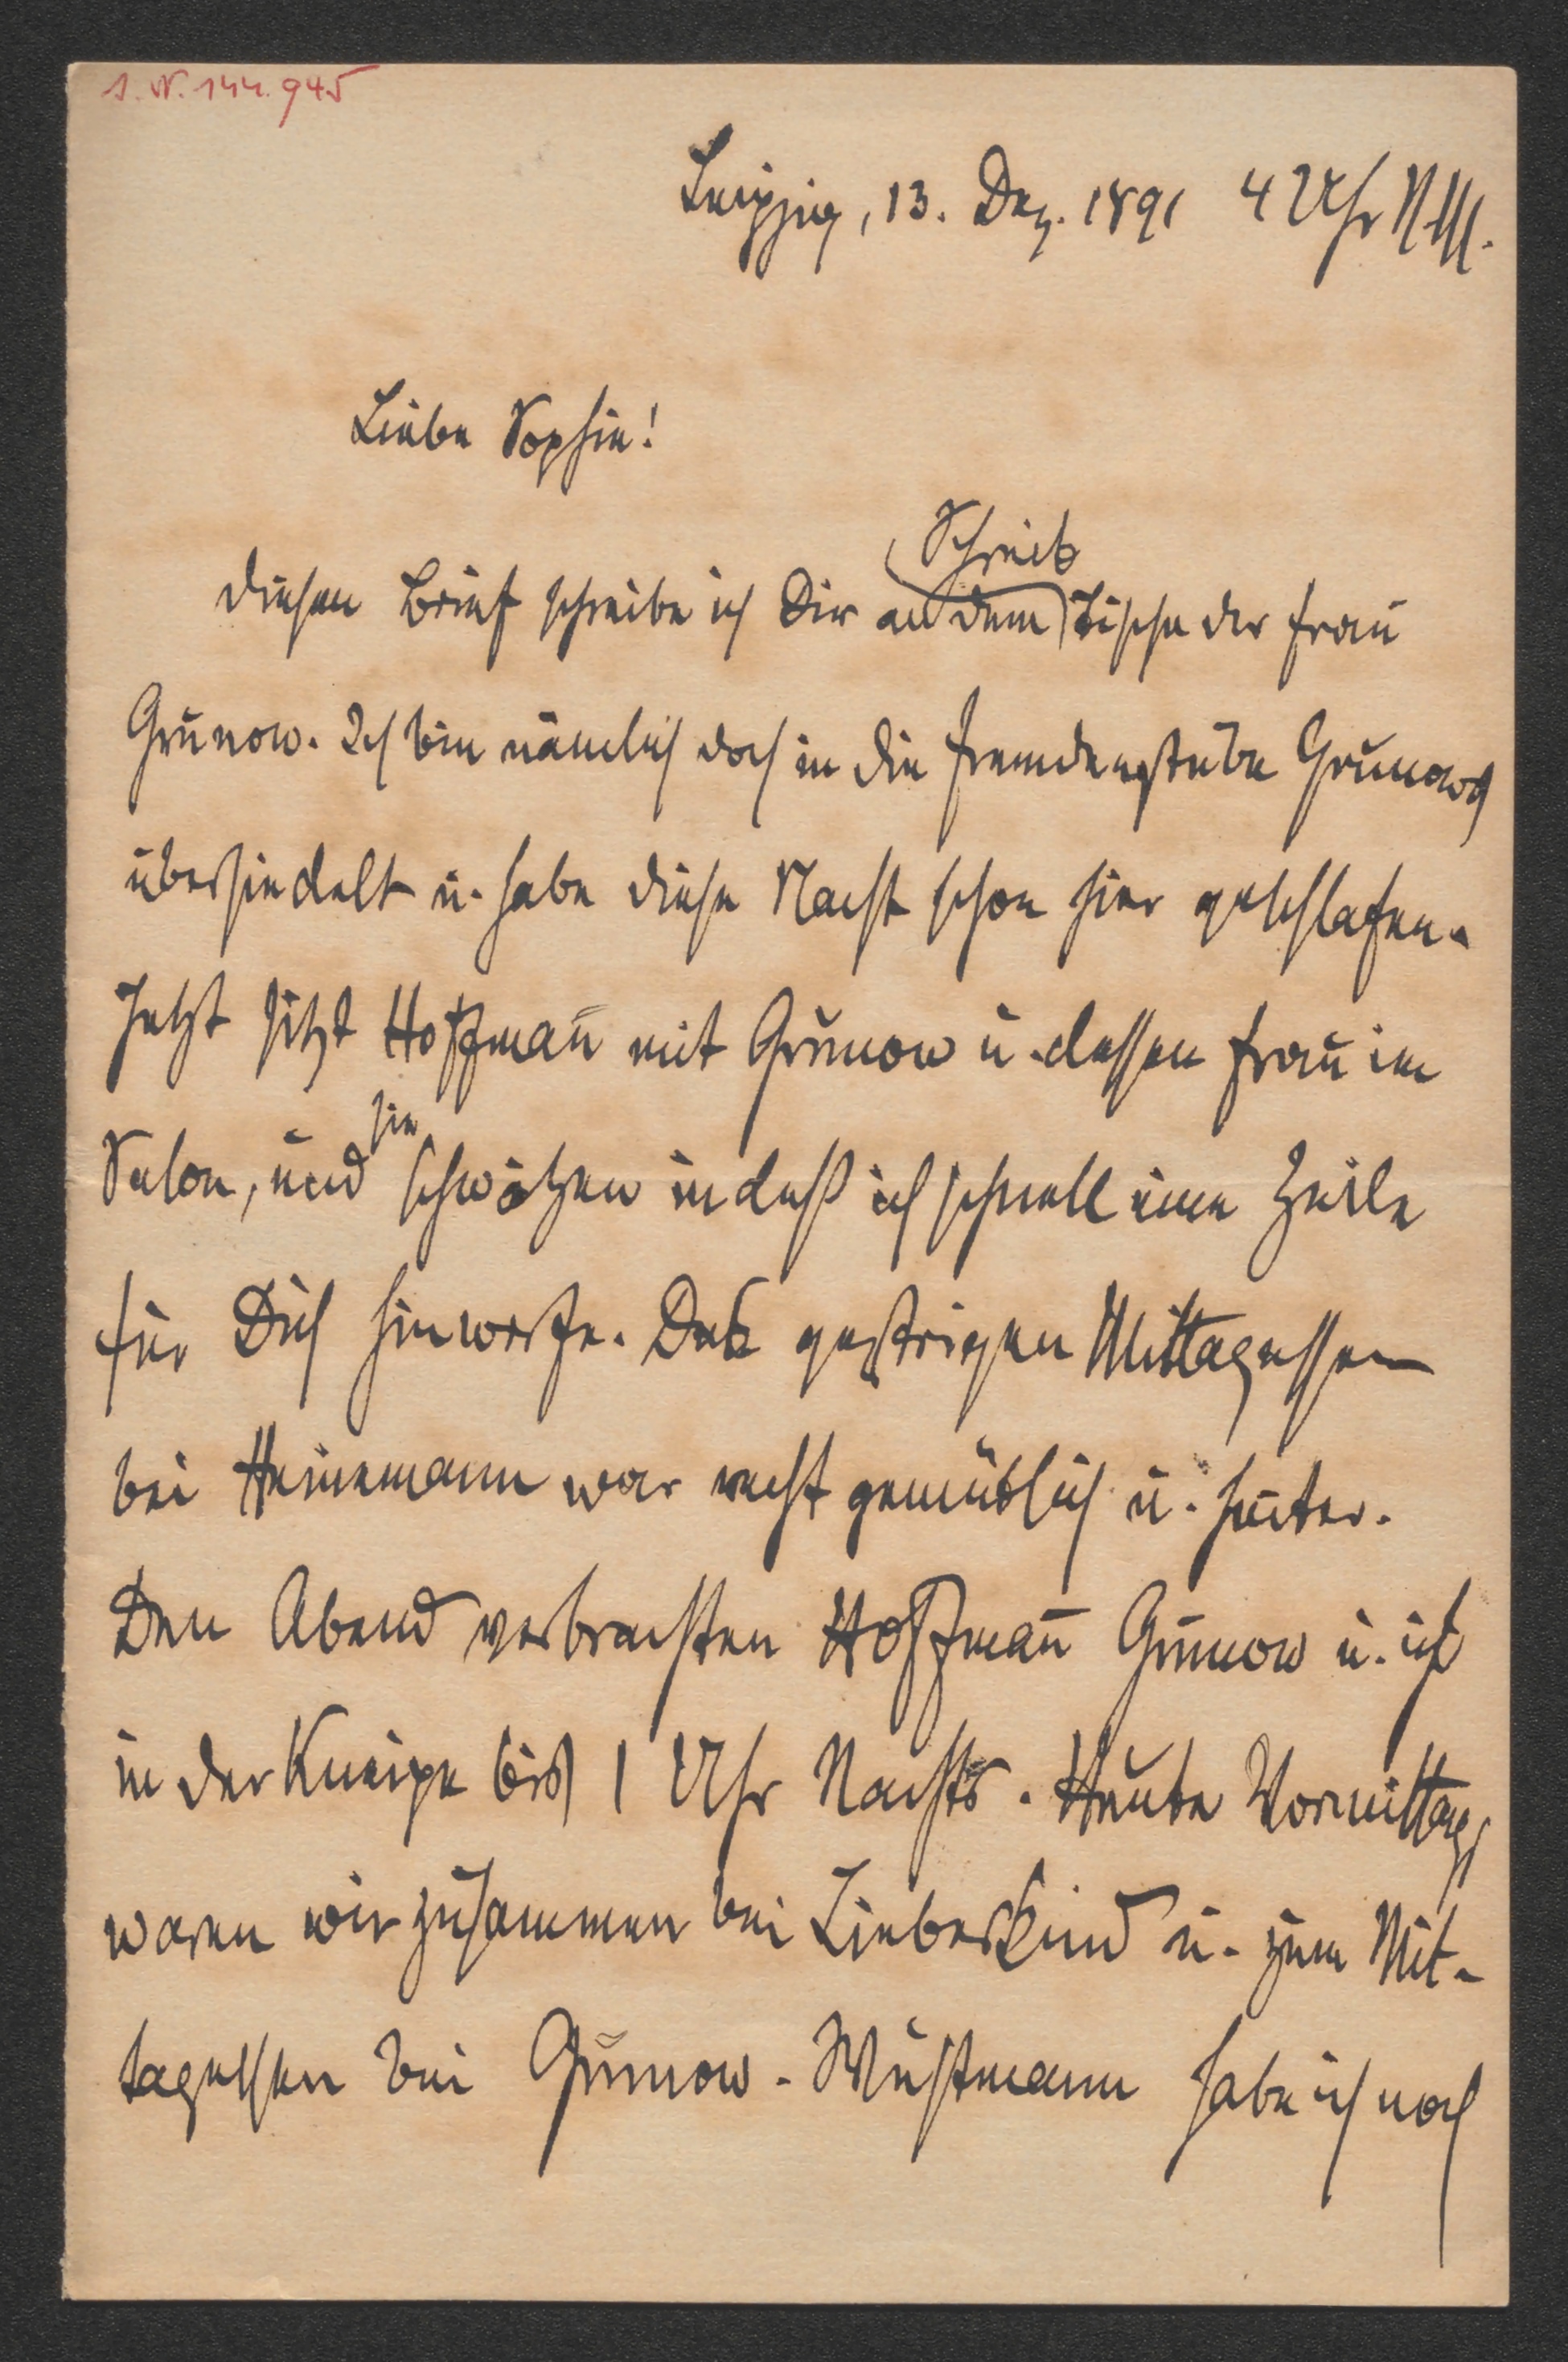 I. N. 144.945
Leipzig, 13. Dez. 1891 4 Uhr NM.
Liebe Sophie!
Schreib
diesen Brief schreibe ich Dir an dem Tische der Frau
Grunow. Ich bin nämlich doch in die Fremdenstube Grunows
übersiedelt u. habe diese Nacht schon hier geschlafen.
Jetzt sitzt Hoffmañ mit Grunow u. dessen Frau im
sie
Salon, und schwätzen indeß ich schnell eine Zeile
für Dich hinwerfe. Das gestrigen Mittagessen
bei Heinemann war recht gemütlich u. heiter.
Den Abend verbrachten Hoffmañ Grunow u. ich
in der Kneipe bis 1 Uhr Nachts. Heute Vormittags
waren wir zusammen bei Liebeskind u. zum Mit-
tagessen bei Grunow. Wustmann habe ich noch